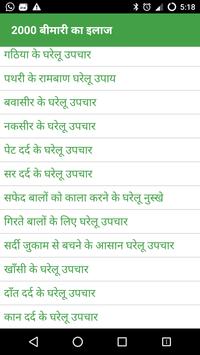 5:18
2000 बीमारी का इलाज
गठिया के घरेलू उपचार
पथरी के रामबाण घरेलू उपाय
बवासीर के घरेलू उपचार
नकसीर के घरेलू उपचार
पेट दर्द के घरेलू उपचार
सर दर्द के घरेलू उपचार
सफेद बालों को काला करने के घरेलू नुस्खे
गिरते बालों के लिए घरेलू उपचार
सर्दी जुकाम से बचने के आसान घरेलू उपचार
खाँसी के घरेलू उपचार
दाँत दर्द के घरेलू उपचार
कान दर्द के घरेलू उपचार